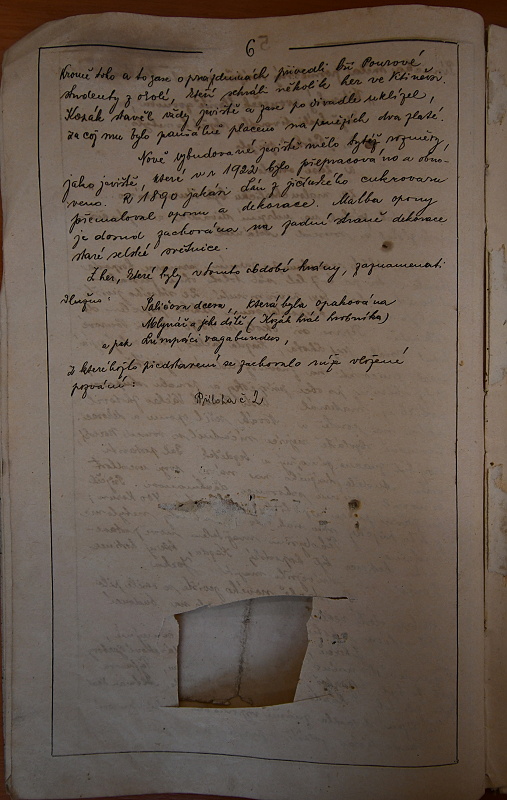 6
Kromě toho a to zase o prázdninách přivedli bři Pourové
studenty z okolí, kteří sehráli několik her ve Ktiněvsi.
Kozák stavěl vždy jeviště a zase po divadle uklízel,
za což mu bylo paušálně placeno na penězích dva zlaté.
Nově vybudované jeviště mělo tytéž rozměry,
jako jeviště, které v r 1922 bylo přepracováno a obno-
veno. R 1890 jakási dán z cukrovaru
přemaloval oponu a dekorace. Malba opony
je dosud zachována na zadní straně dekorace
staré selské světnice.
Z her, které byly v tomto období hrány, zaznamenati
slušno: Paličova dcera, která byla opakována
Mlynář a jeho dítě (Kozák hrál hrobníka)
a pak Lumpáci vagabundus,
z kteréhožto představení se zachovalo níže vložené
pozvání:
Příloha č 2